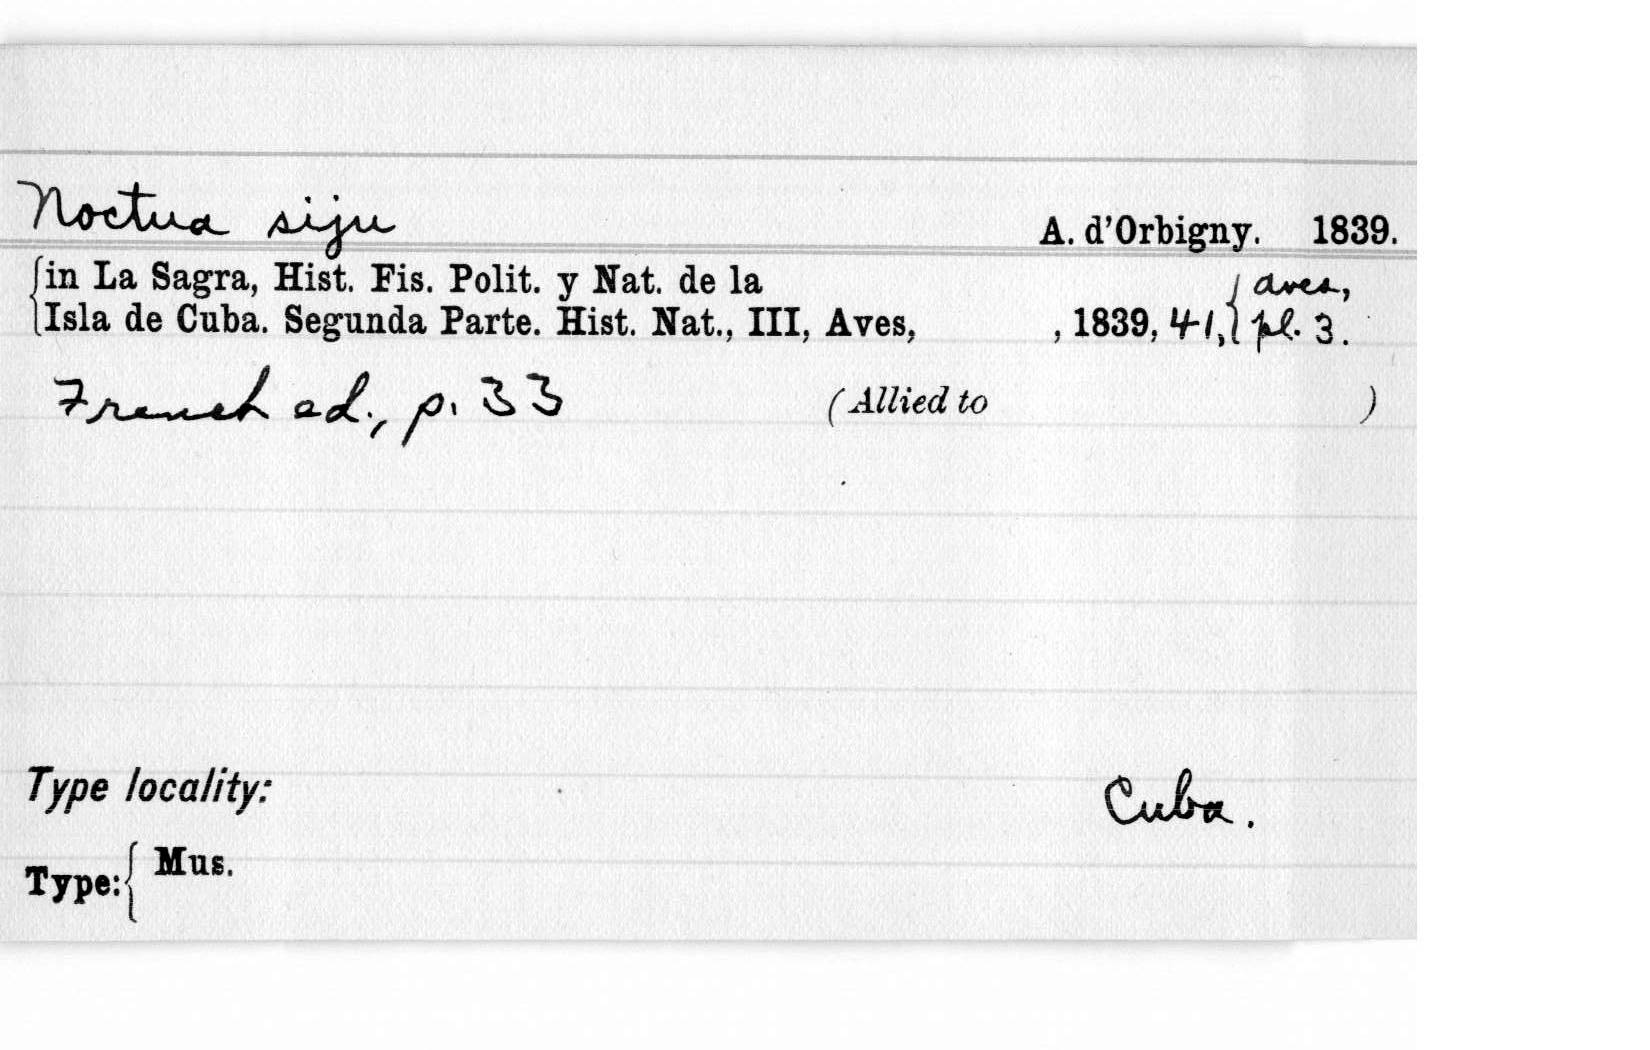 Noctua siju A. d'Orbigny. 1839.
in La Sagra, Hist. Fis. Polit. y Nat. de la Aves,
Isla de Cuba. Segunda Parte. Hist. Nat., III, Aves, , 1839, 41, pl. 3.
French ed., p. 33 (Allied to )
Type locality: Cuba.
Type: Mus.